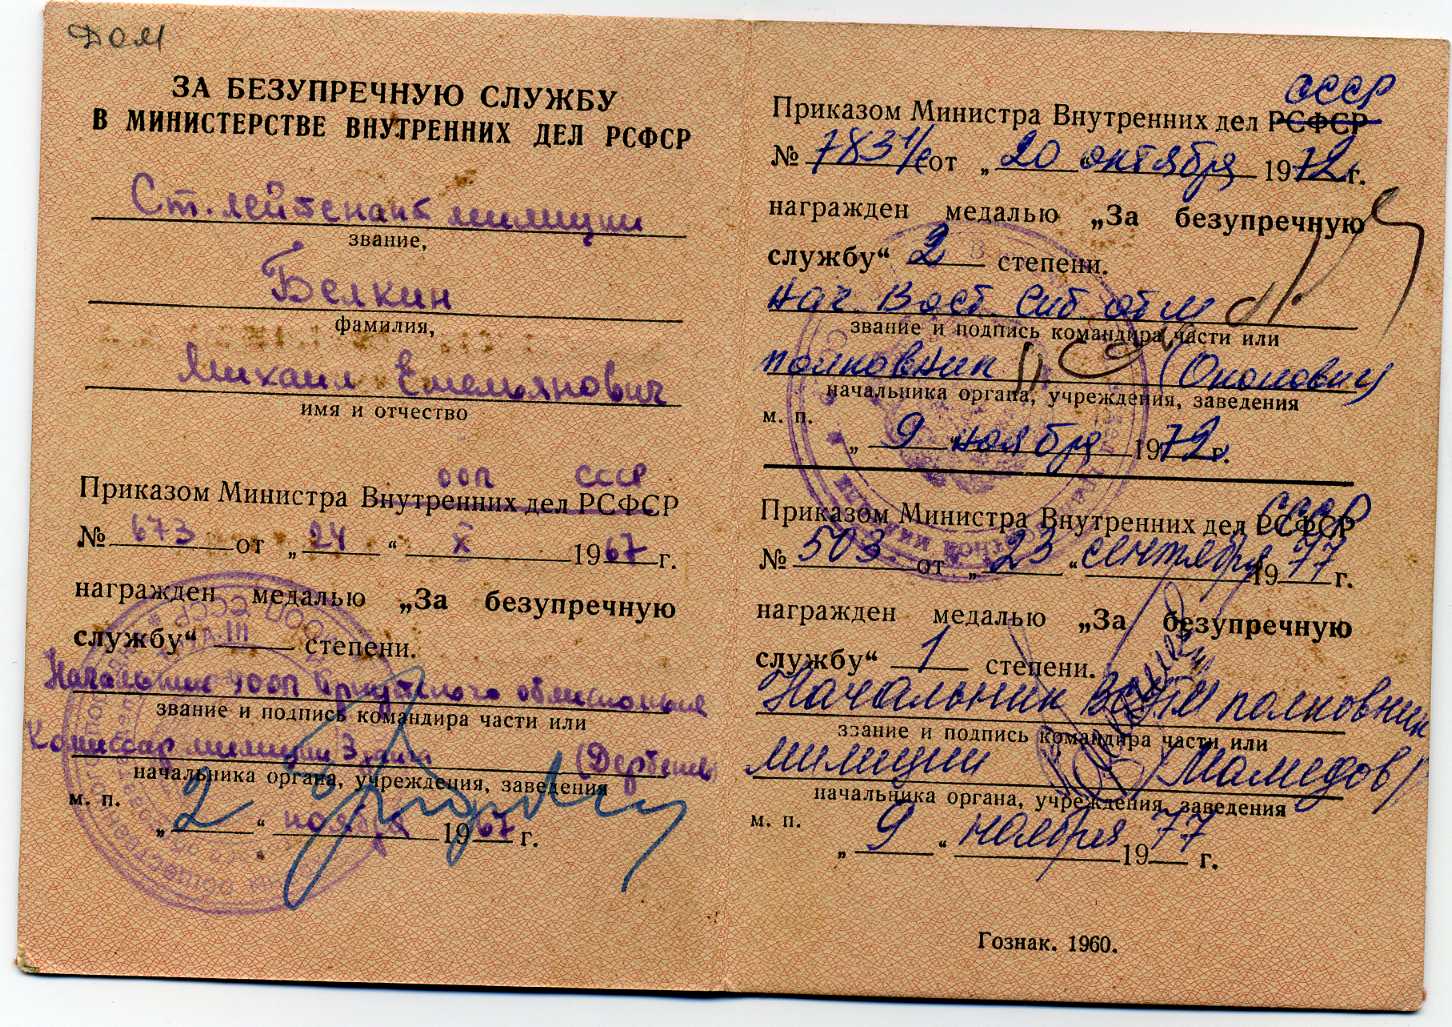 ДОМ
ЗА БЕЗУПРЕЧНУЮ СЛУЖБУ
В МИНИСТЕРСТВЕ ВНУТРЕННИХ ДЕЛ РСФСР
Ст. лейтенант милиции
звание,
Белкин
фамилия,
Михаил Емельянович
имя и отчество
ООП СССР
Приказом Министра Внутренних дел РСФСР
№ 673 от „24“ X 1967 г.
награжден медалью „За безупречную
службу“ III степени.
Начальник УООП Иркутского облисполкома
звание и подпись командира части или
Комиссар милиции 3 ранга
начальника органа, учреждения, заведения
м. п.
„2“ ноября 1967 г.
СССР
Приказом Министра Внутренних дел РСФСР
№ от „20“ октября 1972 г.
награжден медалью „За безупречную
службу“ 2 степени.
нач. Вост. Сиб.
звание и подпись командира части или
полковник
начальника органа, учреждения, заведения
м. п.
„9“ ноября 1972 г.
СССР
Приказом Министра Внутренних дел РСФСР
№ 503 от „23“ сентября 1977 г.
награжден медалью „За безупречную
службу“ 1 степени.
Начальник полковник
звание и подпись командира части или
милиции (Мамедов)
начальника органа, учреждения, заведения
м. п.
„9“ ноября 1977 г.
Гознак. 1960.